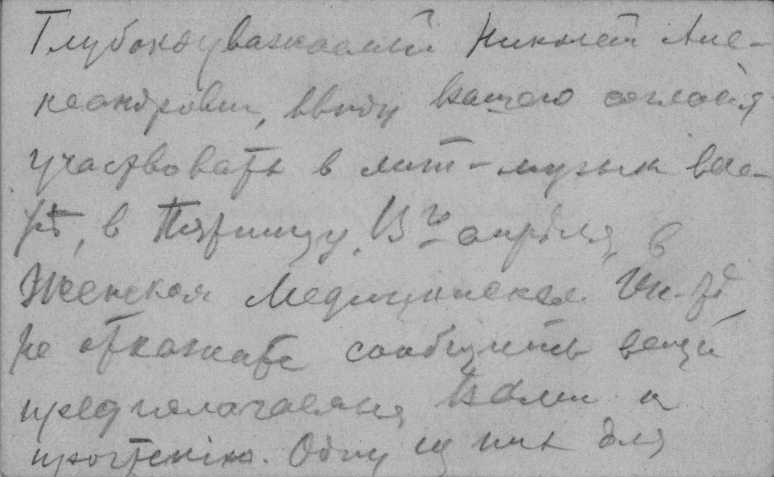 Глубокоуважаемый Николай Але-
ксандрович, ввиду Вашего согласія
участвовать в лит-музык вече-
рѣ, в Пятницу, 13го апрѣля, в
Женском Медицинском Ин-тѣ
не откажите сообщить вещи
предполагаемыя Вами к
прочтенію. Одну из них для